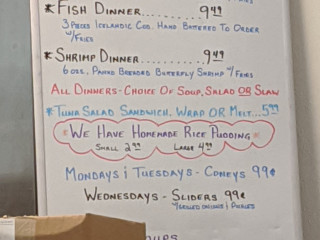 * FISH DINNER......... 9.49
3 PIECES ICELANDIC COD. HAND BATTERED TO ORDER
W/FRIES
* SHRIMP DINNER........ 9.49
6 OSS. PANKO BREADED BUTTERFLY SHRIMP W/FRIES
ALL DINNERS-CHOICE OF SOUP, SALAD OR SLAW
* TUNA SALAD SANDWICH, WRAP OR MELT... 5.99
* WE HAVE HOMEMADE RICE PUDDING *
SMALL 2.99 LARGE 4.99
MONDAYS & TUESDAYS - CONEYS 99¢
WEDNESDAYS - SLIDERS 99¢
W/GRILLED ONIONS & PICKLES